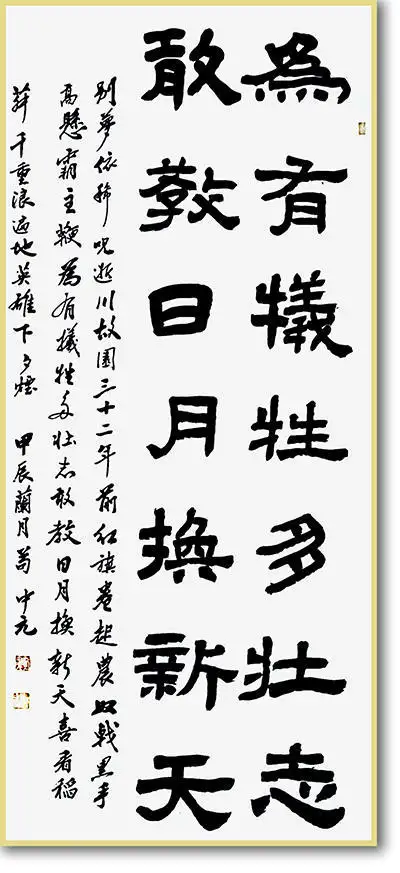 為有犧牲多壯志
敢敎日月換新天
别夢依稀咒逝川故園三十二年前紅旗卷起農奴戟黑手
高懸霸主鞭為有犧牲多壯志敢教日月換新天喜看稻
菽千重浪遍地英雄下夕煙 甲辰蘭月荀中元